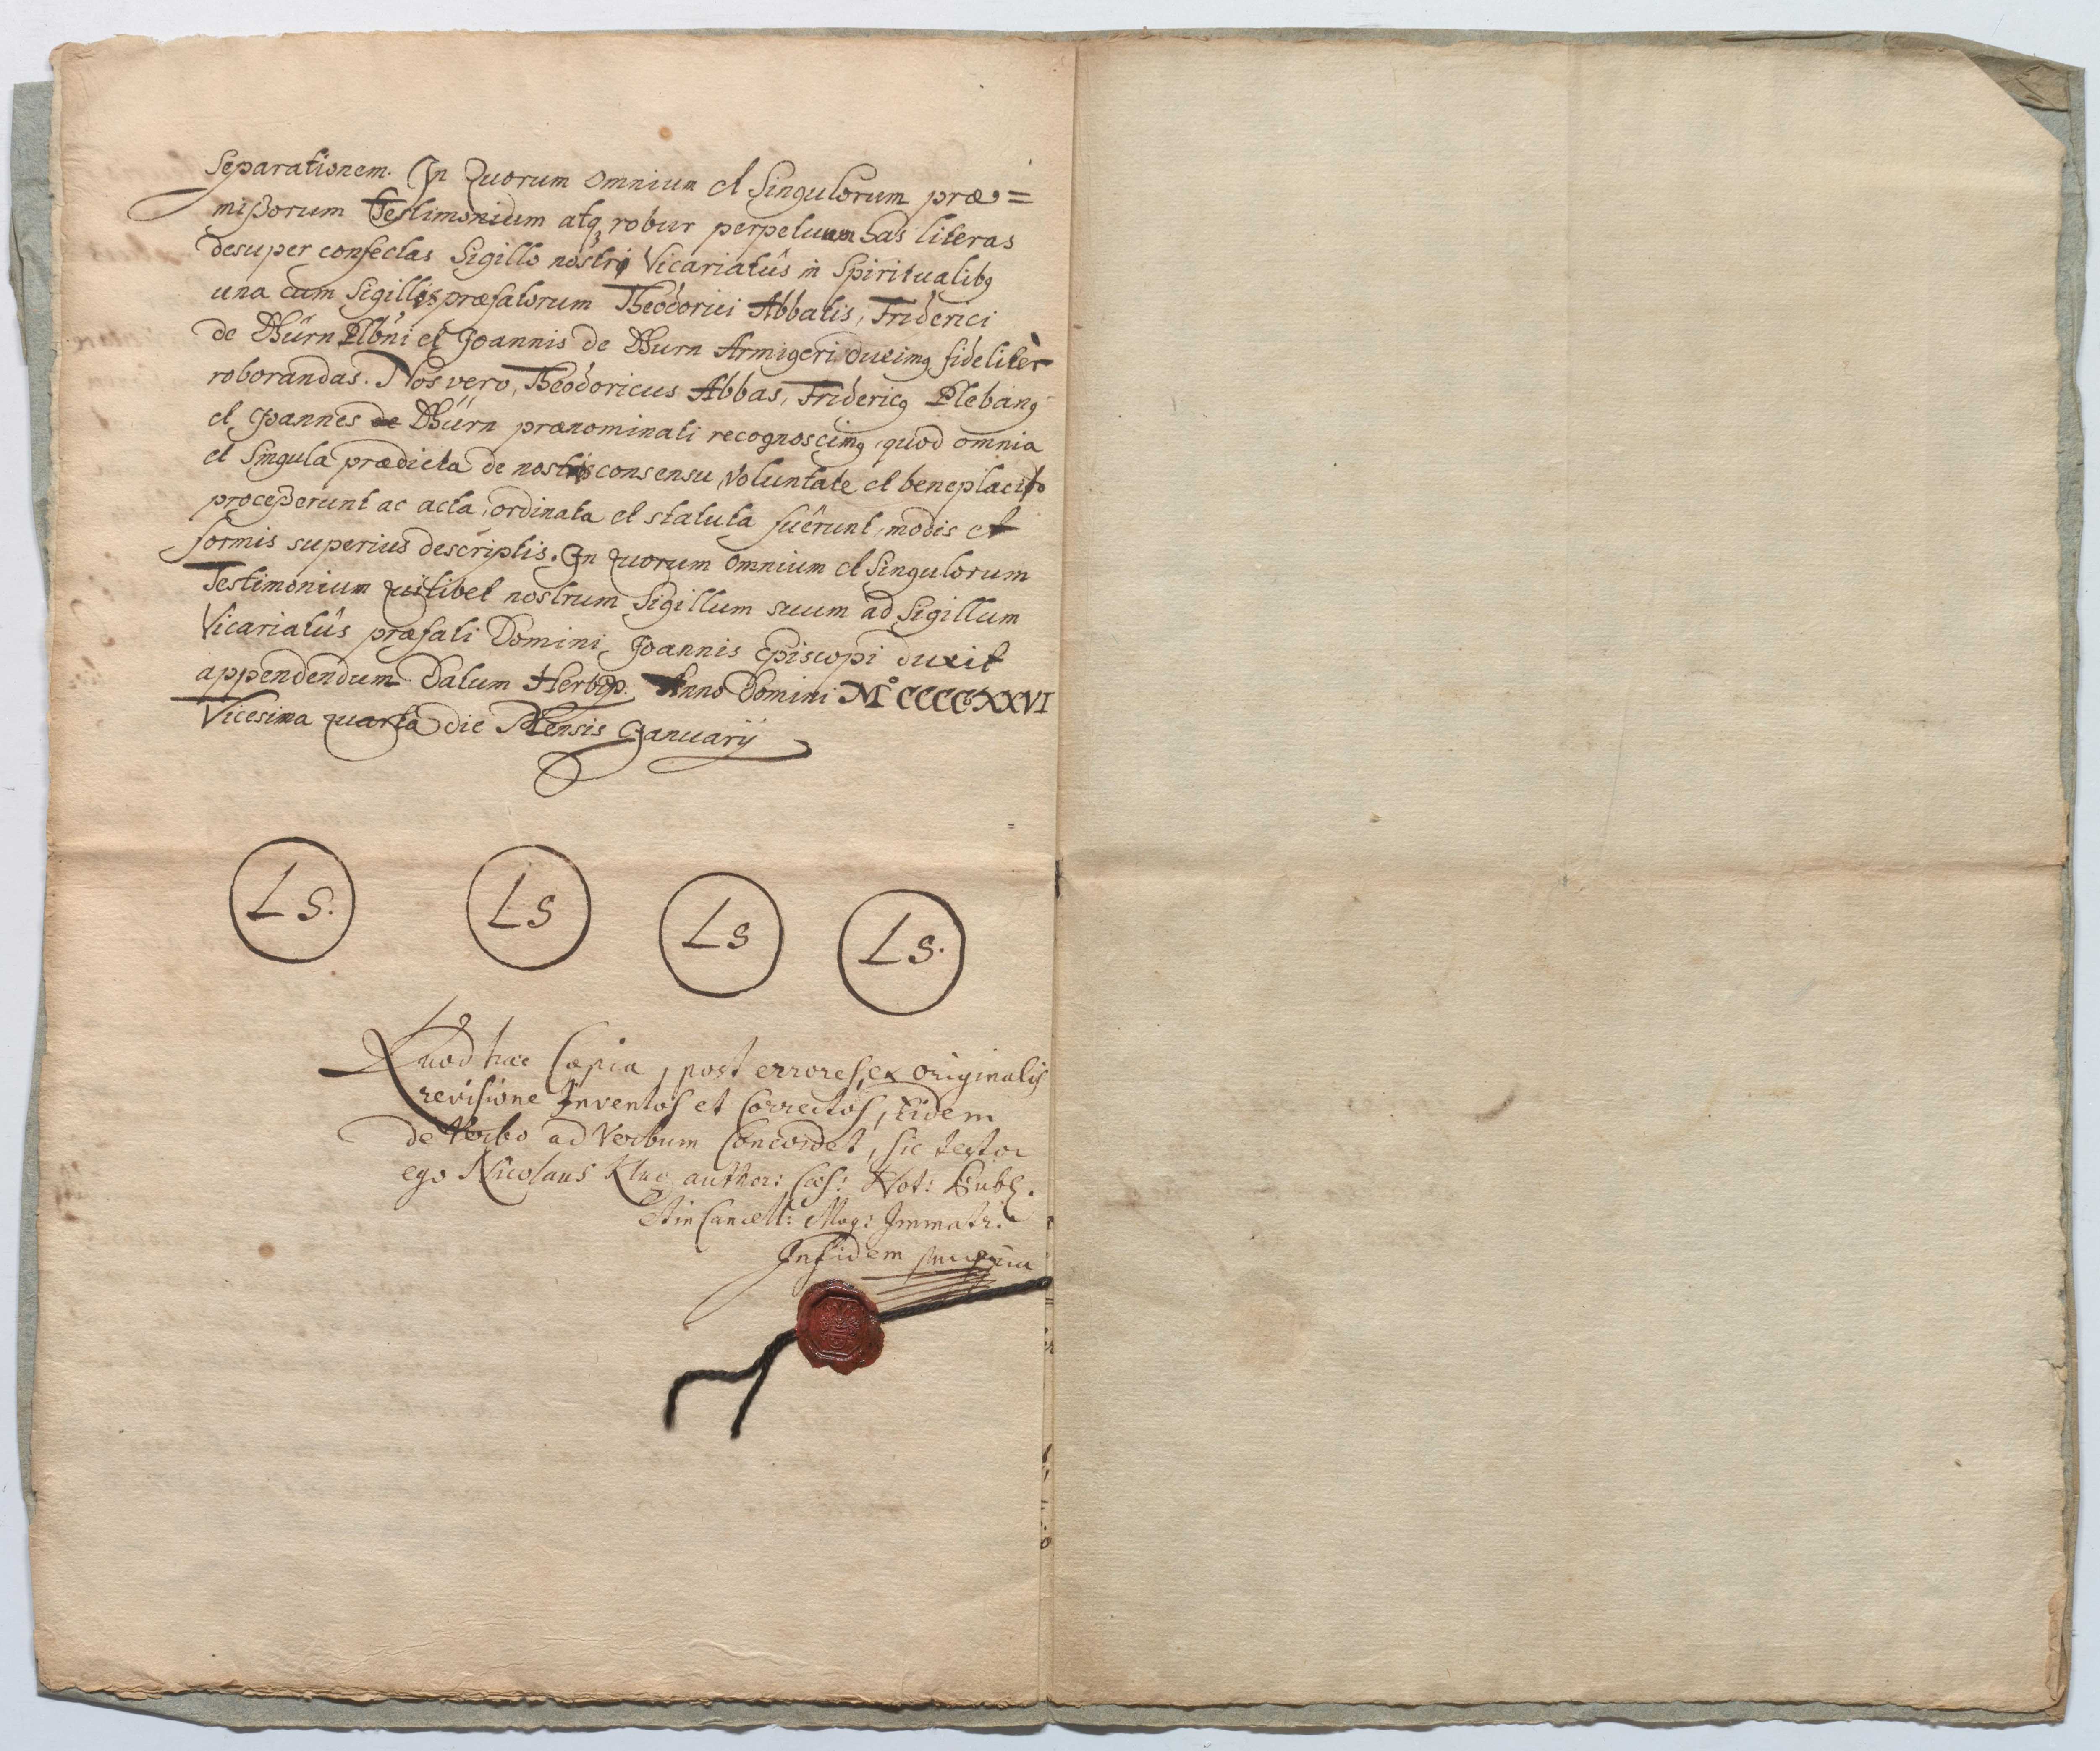 Separationem. In Quorum Omnium et Singulorum præ=
mißorum Testimonium atq robur perpetuum has literas
desuper confectas Sigillo nostri Vicariatûs in Spiritualibq
una cum Sigillis præfatorum Theodorici Abbatis, Friderici
de Dhürn Plbni et Joannis de Dhurn Armigeri duximq fideliter
roborandas. Nos vero, Theodoricus Abbas, Fridericq Plebanq
et Joannes de Dhürn prænominati recognoscimq, quod omnia
et Singula prædicta de nostris consensu, Voluntate et beneplacito
proceßerunt ac acta, ordinata et statuta fuêrunt, modis et
formis superius descriptis. In quorum Omnium et Singulorum
Testimonium quilibet nostrum Sigillum suum ad Sigillum
Vicariatûs præfati Domini Joannis Episcopi duxit
appendendum. Datum Herbip. Anno Domini M° CCCCXXVI
Vicesima quarta die Mensis Januarij
LS.
LS
LS
LS.
Quod hæc Copia, post errores, ex originalis
revisione Inventos et Correctos, Eidem
de Verbo ad Verbum Concordet, sic testor
ego Nicolaus Klug author: Cæs: Not: Publ.
Et in Cancell: Mog: Immatr:
In fidem